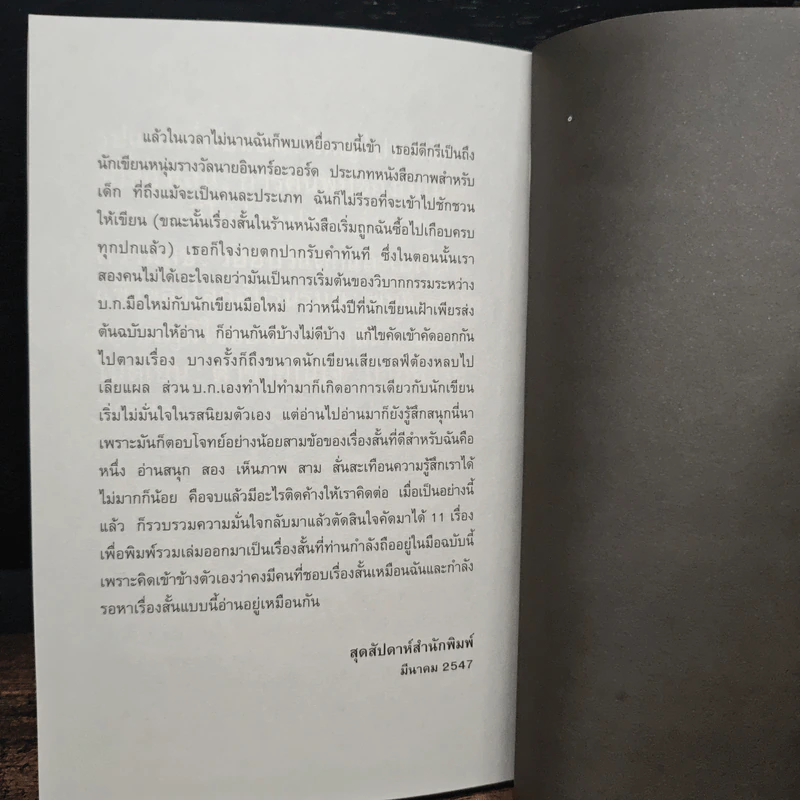 แล้วในเวลาไม่นานฉันก็พบเหยื่อรายนี้เข้า เธอมีดีกรีเป็นถึง
นักเขียนหนุ่มรางวัลนายอินทร์อะวอร์ด ประเภทหนังสือภาพสำหรับ
เด็ก ที่ถึงแม้จะเป็นคนละประเภท ฉันก็ไม่รีรอที่จะเข้าไปชักชวน
ให้เขียน (ขณะนั้นเรื่องสั้นในร้านหนังสือเริ่มถูกฉันซื้อไปเกือบครบ
ทุกปกแล้ว) เธอก็ใจง่ายตกปากรับคำทันที ซึ่งในตอนนั้นเรา
สองคนไม่ได้เอะใจเลยว่ามันเป็นการเริ่มต้นของวิบากกรรมระหว่าง
บ.ก.มือใหม่กับนักเขียนมือใหม่ กว่าหนึ่งปีที่นักเขียนเฝ้าเพียรส่ง
ต้นฉบับมาให้อ่าน ก็อ่านกันดีบ้างไม่ดีบ้าง แก้ไขคัดเข้าคัดออกกัน
ไปตามเรื่อง บางครั้งก็ถึงขนาดนักเขียนเสียเซลฟ์ต้องหลบไป
เลียแผล ส่วน บ.ก.เองทำไปทำมาก็เกิดอาการเดียวกับนักเขียน
เริ่มไม่มั่นใจในรสนิยมตัวเอง แต่อ่านไปอ่านมาก็ยังรู้สึกสนุกนี่นา
เพราะมันก็ตอบโจทย์อย่างน้อยสามข้อของเรื่องสั้นที่ดีสำหรับฉันคือ
หนึ่ง อ่านสนุก สอง เห็นภาพ สาม สั่นสะเทือนความรู้สึกเราได้
ไม่มากก็น้อย คือจบแล้วมีอะไรติดค้างให้เราคิดต่อ เมื่อเป็นอย่างนี้
แล้ว ก็รวบรวมความมั่นใจกลับมาแล้วตัดสินใจคัดมาได้ 11 เรื่อง
เพื่อพิมพ์รวมเล่มออกมาเป็นเรื่องสั้นที่ท่านกำลังถืออยู่ในมือฉบับนี้
เพราะคิดเข้าข้างตัวเองว่าคงมีคนที่ชอบเรื่องสั้นเหมือนฉันและกำลัง
รอหาเรื่องสั้นแบบนี้อ่านอยู่เหมือนกัน
สุดสัปดาห์สำนักพิมพ์
มีนาคม 2547